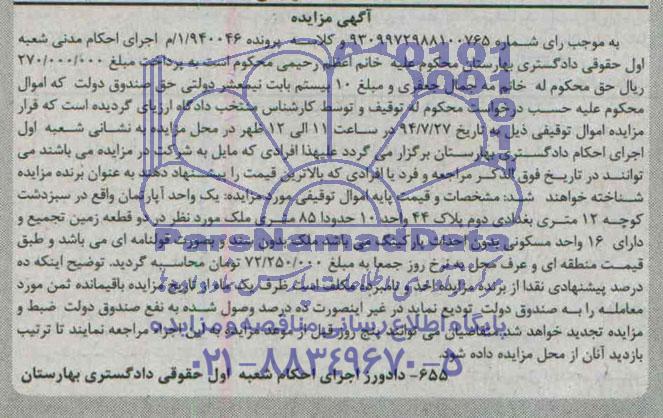 آگهی مزایده
به موجب رای شماره ۹۳۰۹۹۷۲۹۸۸۱۰۰۷۶۵ و کلاسه پرونده ۱/۹۴۰۰۴۶/م اجرای احکام مدنی شعبه
اول حقوقی دادگستری بهارستان محکوم علیه خانم اعظم رحیمی محکوم است به پرداخت مبلغ ۲۷۰/۰۰۰/۰۰۰
ریال حق محکوم له خانم مه جمال جعفری و مبلغ ۱۰ بیستم بابت نیمعشر دولتی حق صندوق دولت که اموال
محکوم علیه حسب درخواست محکوم له توقیف و توسط کارشناس منتخب دادگاه ارزیای گردیده است که قرار
مزایده اموال توقیفی ذیل به تاریخ ۹۴/۷/۲۷ در ساعت ۱۱ الی ۱۲ ظهر در محل مزایده به نشانی شعبه اول
اجرای احکام دادگستری بهارستان برگزار می گردد علیهذا افرادی که مایل به شرکت در مزایده می باشند می
توانند در تاریخ فوق الذکر مراجعه و فرد یا افرادی که بالاترین قیمت را پیشنهاد دهند به عنوان برنده مزایده
شناخته خواهند شد: مشخصات و قیمت پایه اموال توقیفی مورد مزایده: یک واحد آپارتمان واقع در سبزدشت
کوچه ۱۲ متری بغدادی دوم پلاک ۴۴ واحد ۱۰ حدودا ۸۵ متری ملک مورد نظر در دو قطعه زمین تجمیع و
دارای ۱۶ واحد مسکونی بدون احداث پارکینگ می باشد ملک بدون سند و بصورت قولنامه ای می باشد و طبق
قیمت منطقه ای و عرف محل به نرخ روز جمعا به مبلغ ۷۲/۲۵۰/۰۰۰ تومان محاسبه گردید. توضیح اینکه ده
درصد پیشنهادی نقدا از برنده مزایده اخذ و نامبرده مکلف است ظرف یک ماه از تاریخ مزایده باقیمانده ثمن مورد
معامله را به صندوق دولت تودیع نماید در غیر اینصورت ده درصد وصول شده به نفع صندوق دولت ضبط و
مزایده تجدید خواهد شد متقاضیان می توانند پنج روز قبل از موعد مزایده به این اجراء مراجعه نمایند تا ترتیب
بازدید آنان از محل مزایده داده شود.
۶۵۵- دادورز اجرای احکام شعبه اول حقوقی دادگستری بهارستان
ParsNamadData
پایگاه اطلاع رسانی مناقصه و مزایده
۰۲۱-۸۸۳۴۹۶۷۰-۵